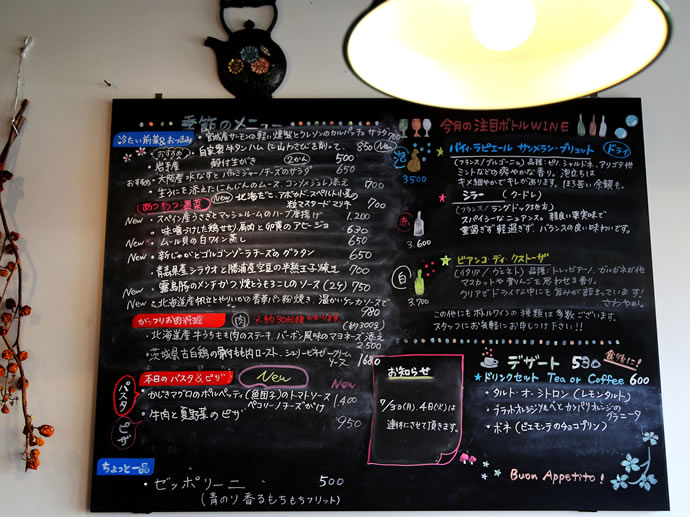 季節のメニュー
冷たい前菜&おつまみ
・宮城産サーモンの軽い燻製とクレソンのカルパッチョ サラダ 700
おすすめ 自家製牛タンハム(にわさびを削って。 850 New
・岩手産 殻付生がき 2カン 500
おすすめ・大阪産水なすとパルミジャーノチーズのサラダ 650
・生うにを添えたにんじんのムース、コンソメジュレ添え 700
あつあつ温菜
New 北海だこ、アボカド、スペルト小麦の粒マスタードマリネ 700
New・スペイン産うさぎとマッシュルームのハーブ唐揚げ 1,200
New・味鳴うけした(鶏せせり)肩肉と卵黄のアヒージョ 630
New・ムール貝の白ワイン蒸し 650
・新じゃがとゴルゴンゾーラチーズのグラタン
・青森県産シラウオと勝浦産空豆の半熟玉子とじ 700
New・霧島豚のメンチカツ焼とうもろこしのソース(2ヶ) 750
New・北海道産帆立とやりいかの香草パン粉焼き、温かいタルタルソースで 980
がっつりお肉料理
肉 ※約30分程かかります。
(約300g)
・北海道産牛うちもも肉のステーキ バーボン風味のマヨネーズ添え 2,500
・茨城県古白鶏の骨付もも肉ロースト、シェリービネガークリームソース 1680
本日のパスタ&ピザ
New
パスタ
・かじきマグロのポルペッティ(魚団子)のトマトソース New
ペコリーノチーズがけ 1,400
ピザ
・牛肉と夏野菜のピザ 950
ちょっと一品
・ゼッポリーニ 500
(青のり香るもちもちフリット)
今月の注目ボトルWINE
泡
3500
バイィ・ラピエール サンメラン・ブリュット ドライ
(フランス/ブルゴーニュ)品種:ピノ、シャルドネ、アリゴテ他
ミントなどの爽やかな香り。泡立ちは
キメ細やかでキレがあります。ほろ苦い余韻も。
赤
3.600
シラー (クドレ)
(フランス/ラングドック地方)
スパイシーなニュアンス。軽良い果実味で
重過ぎず軽過ぎず。バランスの良い味わいです。
白
3.700
ビアンコ・ディ・クストーザ
(イタリア/ヴェネト)品種:トレッビアーノ、ガルガネガ他
マスカットや青りんごを思わせる香り。
クリアでドライな中にも旨みが詰まっています!
さわやか〜
この他にもボトルワインの種類は多数ございます。
スタッフにお気軽にお申しつけ下さい!!
お知らせ
7/3(月)、4日(火)は
連休にさせて頂きます。
デザート 530 食後に!
ドリンクセット Tea or Coffee 600
・タルト・オ・シトロン(レモンタルト)
・ブラッドオレンジジュレとカンパリオレンジのグラニータ
・ボネ(ピエモンテのチョコプリン)
Buon Appetito!